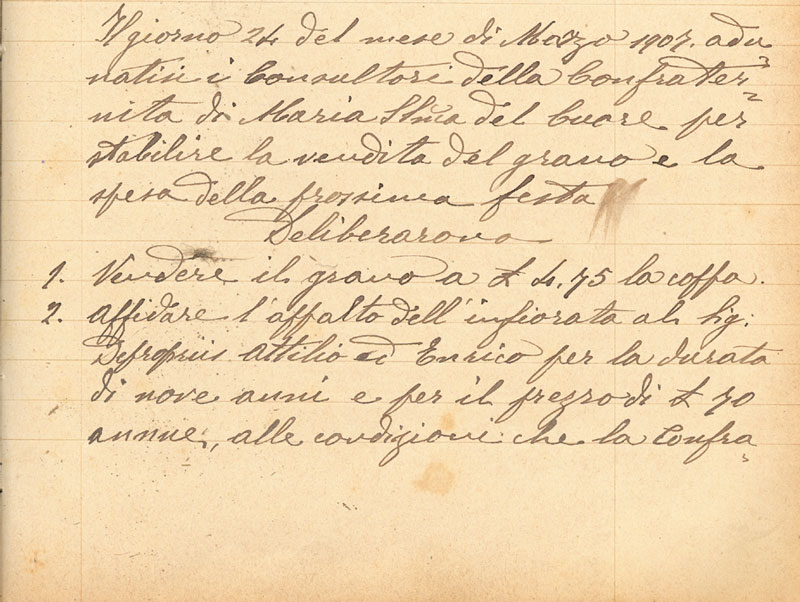 Il giorno 24 del mese di Marzo 1907. adu=
natisi i Consultori della Confrater=
nita di Maria SSma del Cuore per
stabilire la vendita del grano e la
spesa della prossima festa
Deliberarono
1. Vendere il grano a £ 4,75 la coppa.
2. Affidare l'appalto dell'infiorata al Sig:
Depropriis Attilio ed Enrico per la durata
di nove anni e per il prezzo di £ 70
annue, alle condizioni che la Confra=